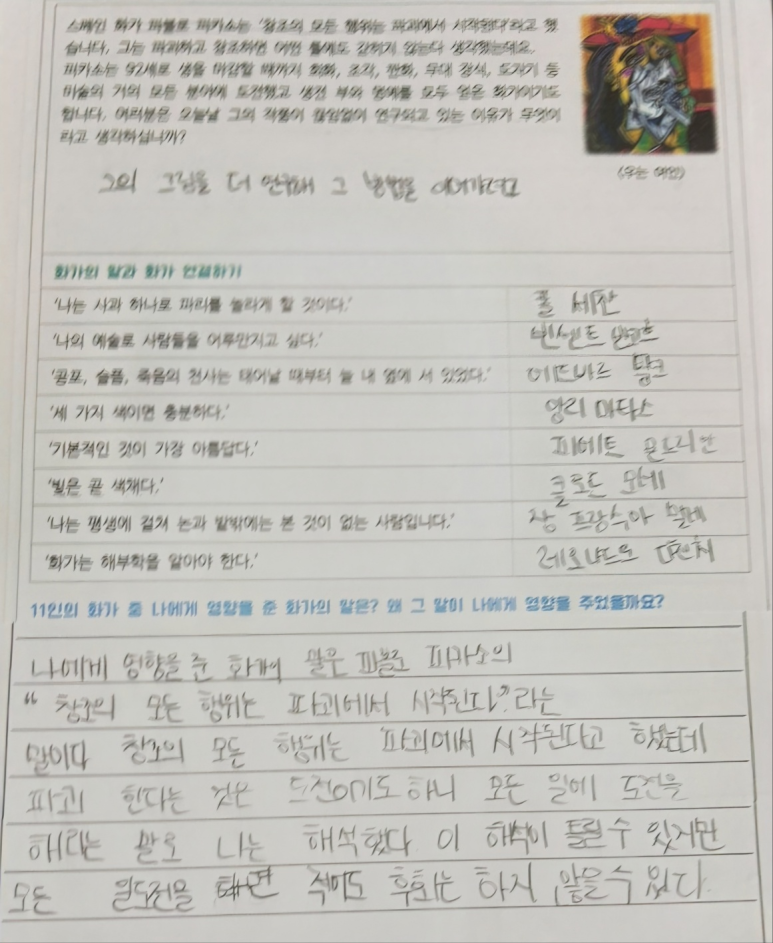 스페인 화가 파블로 피카소는 '창조의 모든 행위는 파괴에서 시작된다'라고 했
습니다. 그는 파괴하고 창조하면 어떤 틀에도 갇히지 않는다 생각했는데요.
피카소는 92세로 생을 마감할 때까지 회화, 조각, 판화, 무대 장식, 도자기 등
미술의 거의 모든 분야에 도전했고 생전 부와 명예를 모두 얻은 화가이기도
합니다. 여러분은 오늘날 그의 작품이 끊임없이 연구되고 있는 이유가 무엇이
라고 생각하십니까?
(우는 여인)
그의 그림을 더 연구해 그 방법을 이어가려고
화가의 말과 화가 연결하기
'나는 사과 하나로 파리를 놀라게 할 것이다.' 폴 세잔
'나의 예술로 사람들을 어루만지고 싶다.' 빈센트 반고흐
'공포, 슬픔, 죽음의 천사는 태어날 때부터 늘 내 옆에 서 있었다.' 에드바르 뭉크
'세 가지 색이면 충분하다.' 앙리 마티스
'기본적인 것이 가장 아름답다.' 피에트 몬드리안
'빛은 곧 색채다.' 클로드 모네
'나는 평생에 걸쳐 논과 밭밖에는 본 것이 없는 사람입니다.' 장 프랑수아 밀레
'화가는 해부학을 알아야 한다.' 레오나르도 다빈치
11인의 화가 중 나에게 영향을 준 화가의 말은? 왜 그 말이 나에게 영향을 주었을까요?
나에게 영향을 준 화가의 말은 파블로 피카소의
"창조의 모든 행위는 파괴에서 시작된다"라는
말이다 창조의 모든 행위는 파괴에서 시작된다고 했는데
파괴 한다는 것은 도전이기도 하니 모든 일에 도전을
해라는 말로 나는 해석했다 이 해석이 틀릴 수 있지만
모든 일 도전을 하면 적어도 후회는 하지 않을 수 있다.